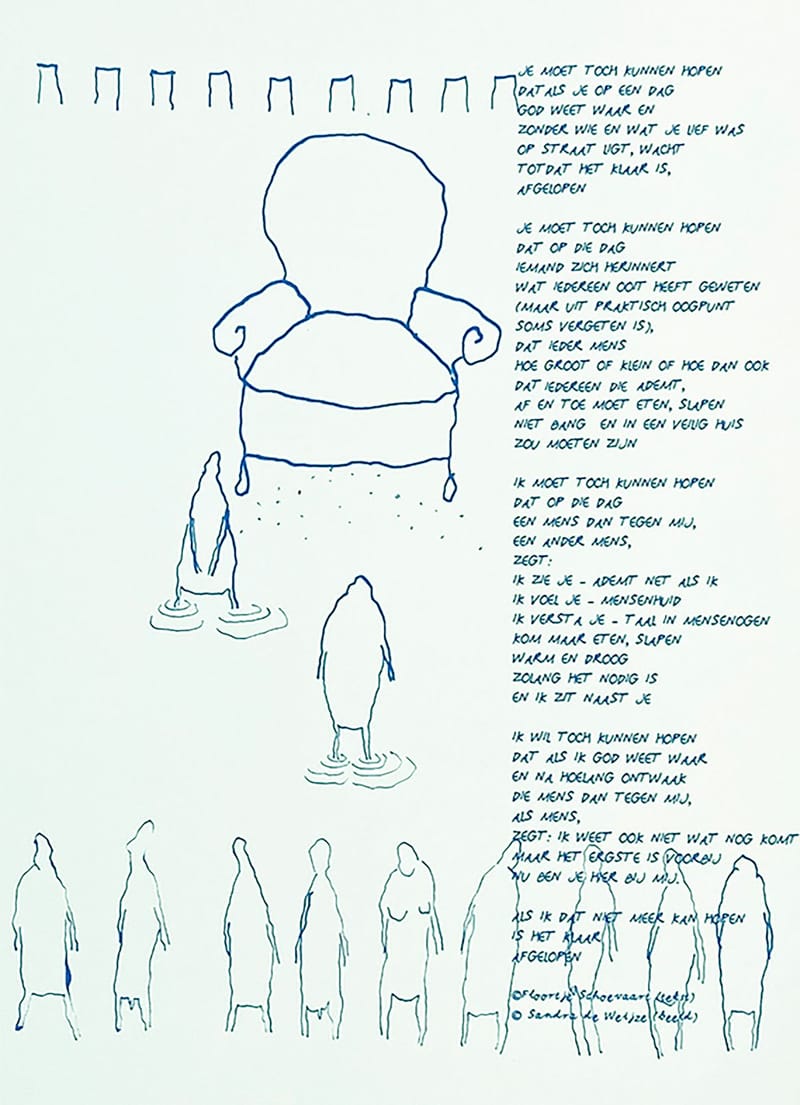 JE MOET TOCH KUNNEN HOPEN
DAT ALS JE OP EEN DAG
GOD WEET WAAR EN
ZONDER WIE EN WAT JE LIEF WAS
OP STRAAT LIGT, WACHT
TOTDAT HET KLAAR IS,
AFGELOPEN
JE MOET TOCH KUNNEN HOPEN
DAT OP DIE DAG
IEMAND ZICH HERINNERT
WAT IEDEREEN OOIT HEEFT GEWETEN
(MAAR UIT PRAKTISCH OOGPUNT
SOMS VERGETEN IS),
DAT IEDER MENS
HOE GROOT OF KLEIN OF HOE DAN OOK
DAT IEDEREEN DIE ADEMT,
AF EN TOE MOET ETEN, SLAPEN
NIET BANG EN IN EEN VEILIG HUIS
ZOU MOETEN ZIJN
IK MOET TOCH KUNNEN HOPEN
DAT OP DIE DAG
EEN MENS DAN TEGEN MIJ,
EEN ANDER MENS,
ZEGT:
IK ZIE JE - ADEMT NET ALS IK
IK VOEL JE - MENSENHUID
IK VERSTA JE - TAAL IN MENSENOGEN
KOM MAAR ETEN, SLAPEN
WARM EN DROOG
ZOLANG HET NODIG IS
EN IK ZIT NAAST JE
IK WIL TOCH KUNNEN HOPEN
DAT ALS IK GOD WEET WAAR
EN NA HOELANG ONTWAAK
DIE MENS DAN TEGEN MIJ,
ALS MENS,
ZEGT: IK WEET OOK NIET WAT NOG KOMT
MAAR HET ERGSTE IS VOORBIJ
NU BEN JE HIER BIJ MIJ.
ALS IK DAT NIET MEER KAN HOPEN
IS HET KLAAR
AFGELOPEN
© Floortje Schoevaart (tekst)
© Sandra de Weijze (beeld)